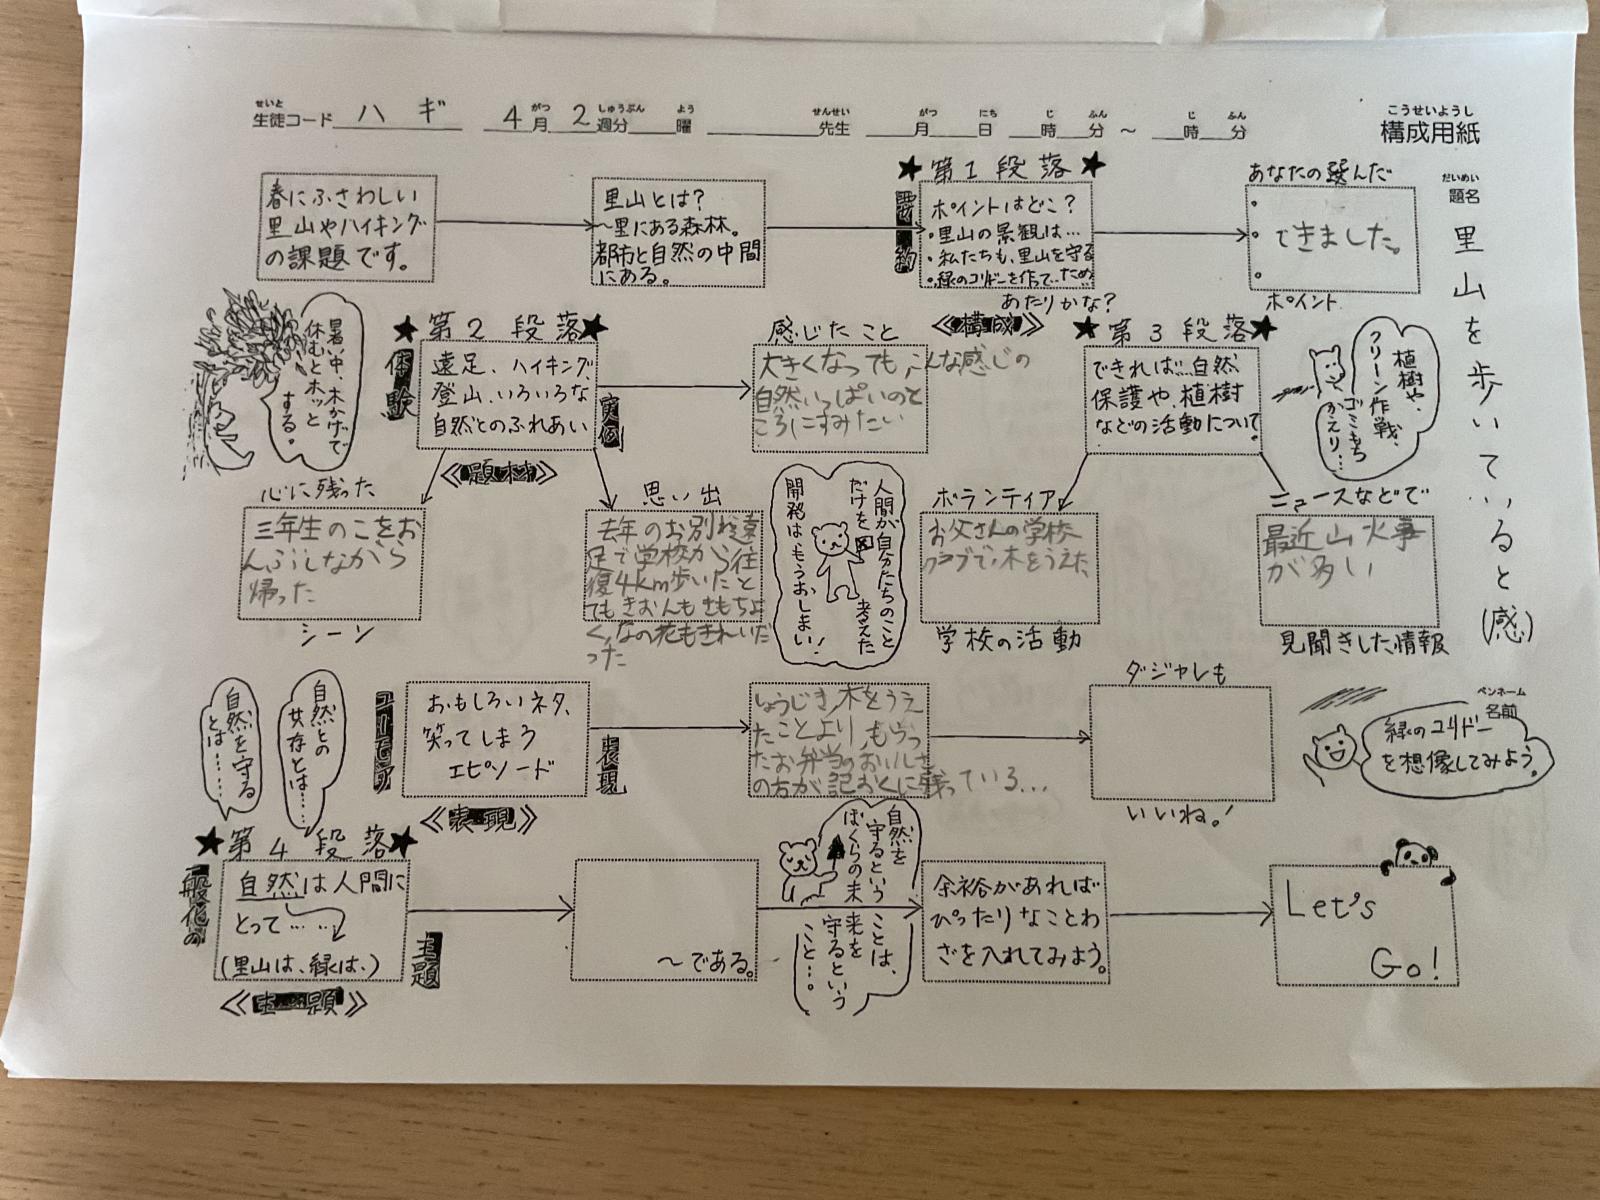 構成用紙
こうせいようし
せいと
生徒コード ハギ 4月2週分 曜 先生 月 日 時 分 ～ 時 分
がつ しゅうぶん よう せんせい がつ にち じ ふん じ ふん
だいめい
題名
里山を歩いていると(感)
春にふさわしい
里山やハイキング
の課題です。
里山とは？
～里にある森林。
都市と自然の中間
にある。
★第1段落★
要約
ポイントはどこ？
・里山の景観は…
・私たちも、里山を守る
・緑のコリドーを作て…ため
あたりかな？
《構成》
あなたの選んだ
できました。
ポイント
暑い中、木かげで
休むとホッと
する。
★第2段落★
体験
遠足、ハイキング
登山、いろいろな
自然とのふれあい
《題材》
実例
感じたこと
大きくなっても、こんな感じの
自然いっぱいのと
ころにすみたい
★第3段落★
できれば…自然
保護や、植樹
などの活動について。
植樹や、
クリーン作戦、
ゴミもち
かえり…
心に残った
三年生のこをお
んぶしながら
帰った
シーン
思い出
去年のお別れ遠
足で学校から往
復4km歩いたと
てもきおんもきもちよ
く、なの花もきれいだ
った
人間が自分たちのこと
だけを考えた
開発は、もうおしまい！
ボランティア
お父さんの学校
クラブで、木をうえた
学校の活動
ニュースなどで
最近山火事
が多い
見聞きした情報
自然を守る
とは……
自然との
共存とは……
ユーモア
おもしろいネタ、
笑ってしまう
エピソード
《表現》
表現
しょうじき、木をうえ
たことより、もらっ
たお弁当のおいしさ
の方が記おくに残っている…
ダジャレも
いいね！
ペンネーム
名前
緑のコリドー
を想像してみよう。
★第4段落★
一般化の
自然は人間に
とって……
(里山は、緑は、)
《主題》
主題
～である。
自然を
守るという
ことは、
ぼくらの未
来を
守るという
こと…。
余裕があれば
ぴったりなことわ
ざを入れてみよう。
Let's
Go!